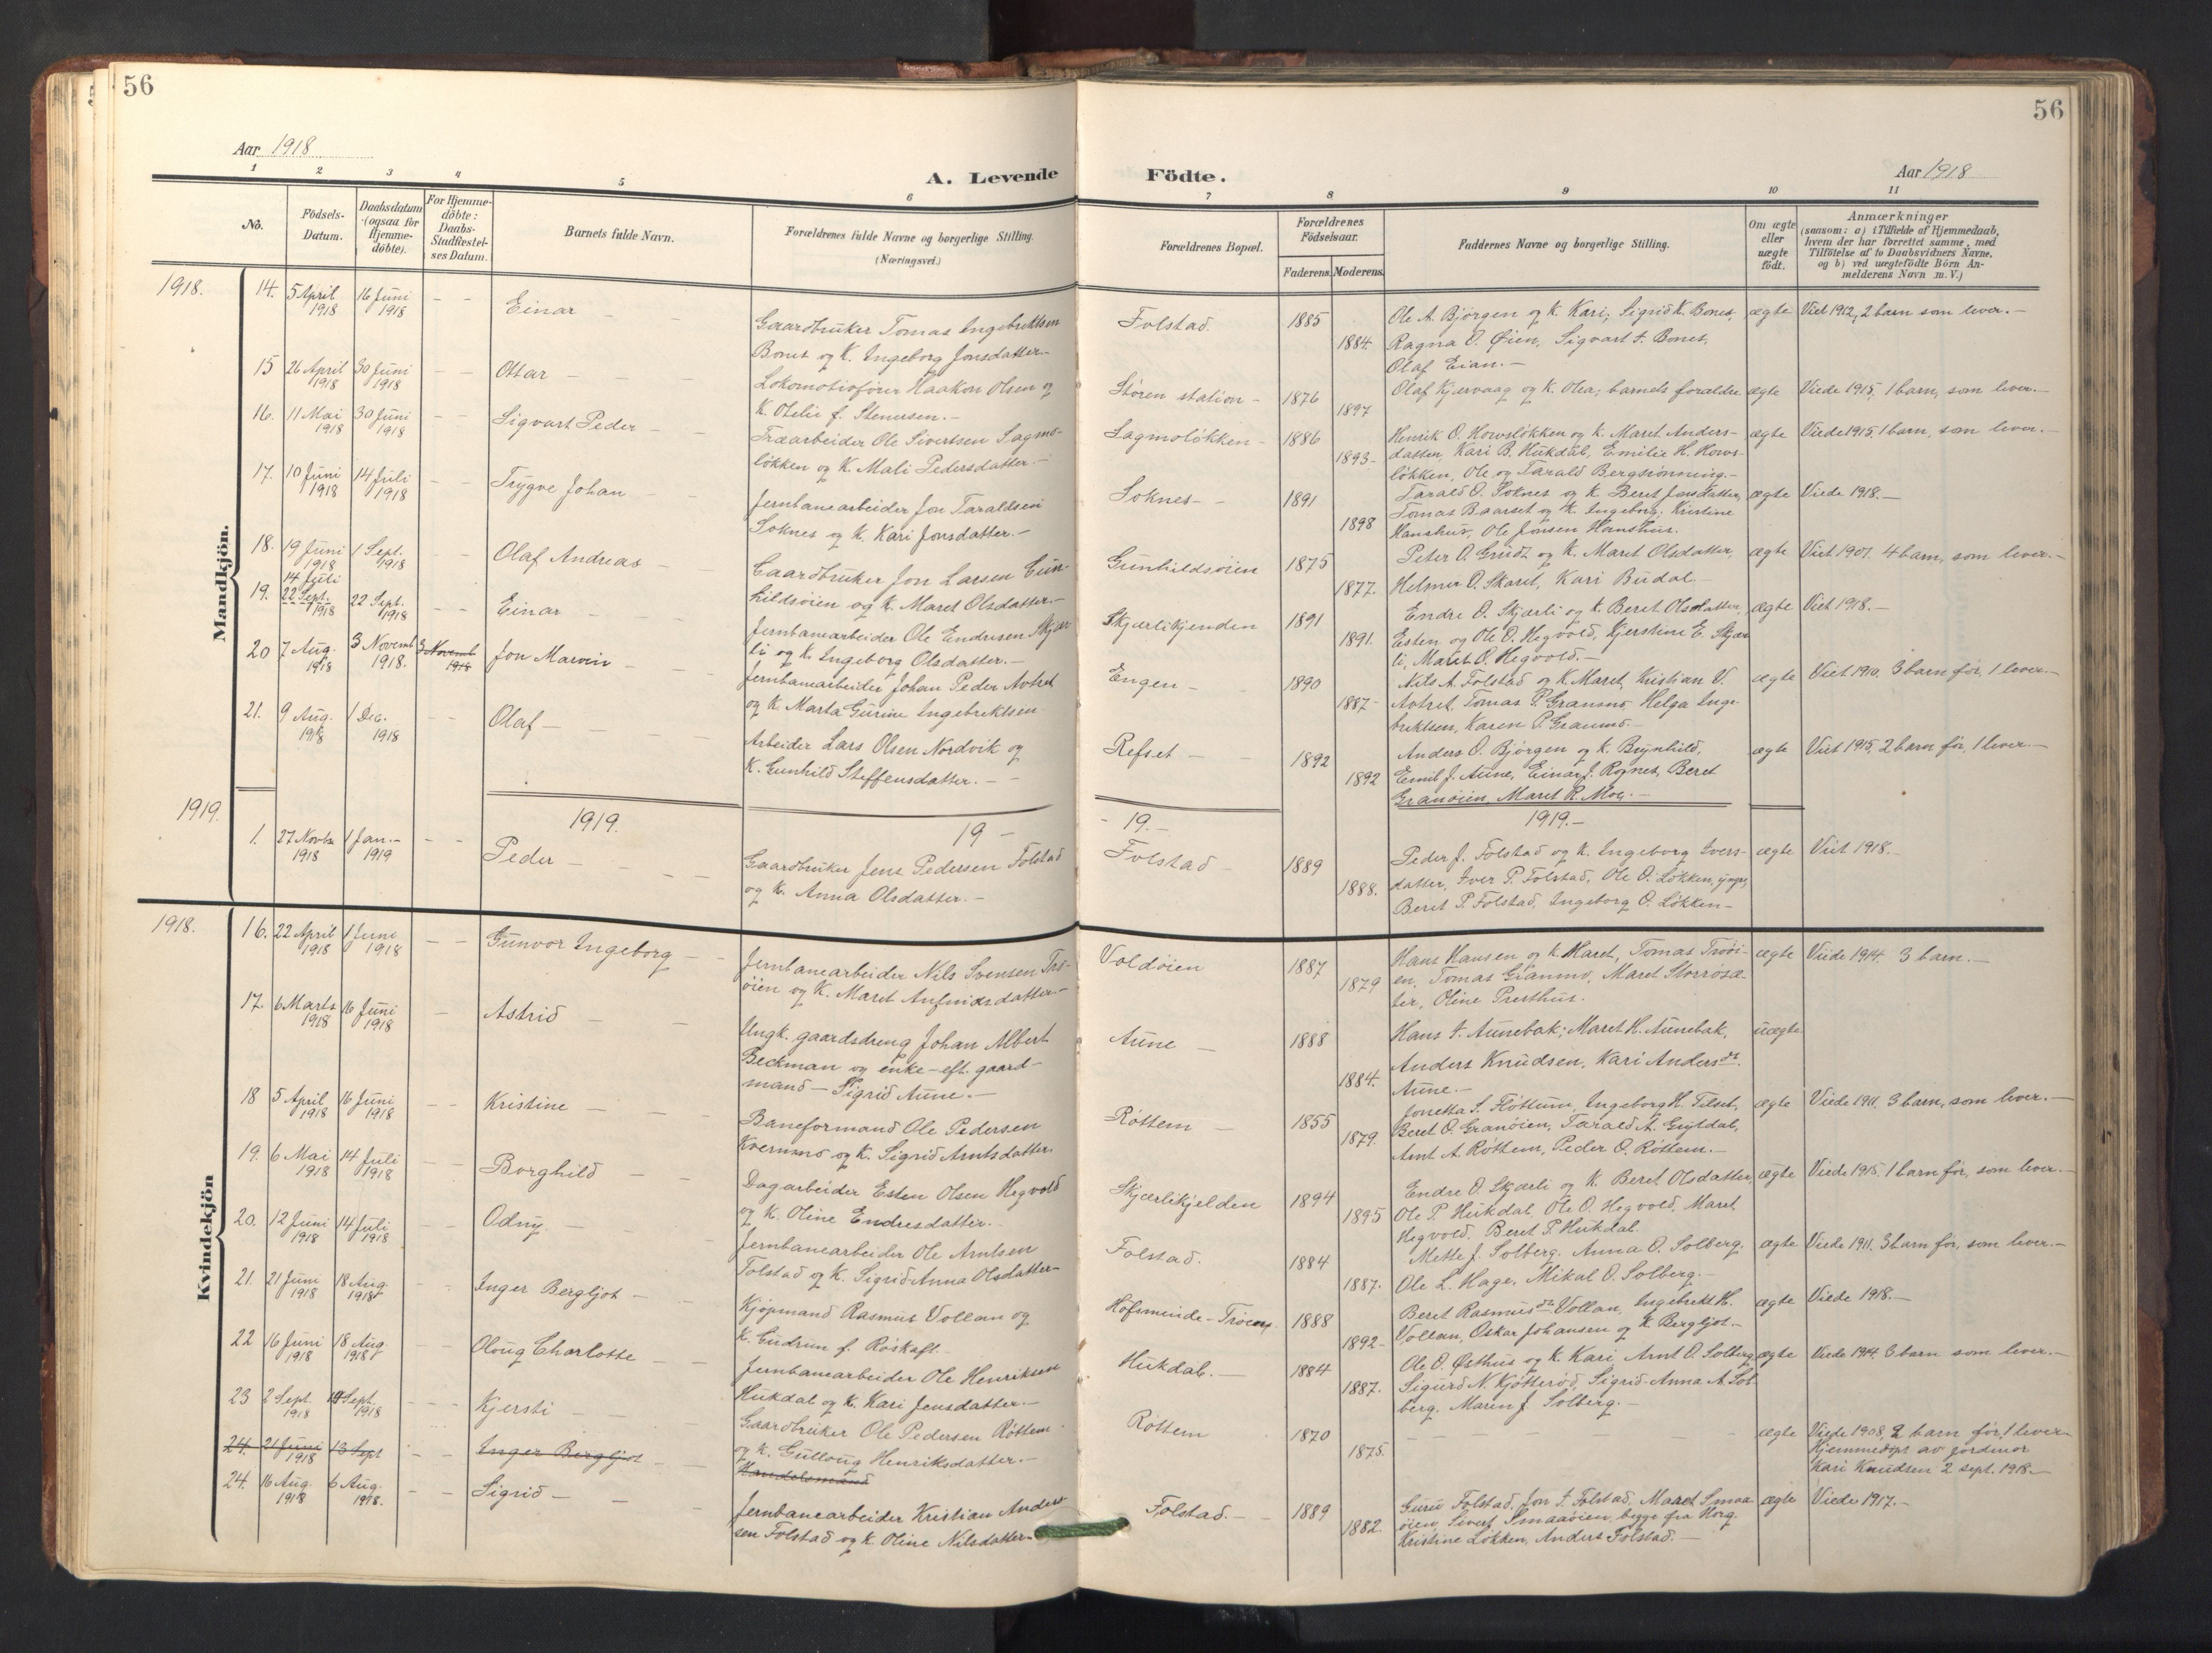 56
56
Aar 1918
Aar 1918
A. Levende Födte.
1 2 3 4 5 6 7 8 9 10 11
No.
Födsels-
Datum.
Daabsdatum
(ogsaa for
Hjemme-
döbte).
For Hjemme-
döbte:
Daabs-
Stadfæstel-
ses Datum.
Barnets fulde Navn.
Forældrenes fulde Navne og borgerlige Stilling.
(Næringsvei.)
Forældrenes Bopæl.
Forældrenes
Födselsaar.
Faderens. Moderens.
Faddernes Navne og borgerlige Stilling.
Om ægte
eller
uægte
födt.
Anmærkninger
(saasom: a) i Tilfælde af Hjemmedaab,
hvem der har forrettet samme, med
Tilföielse af to Daabsvidners Navne,
og b) ved uægtefödte Börn An-
melderens Navn m.V.)
Mandkjön.
1918.
14. 5 April 1918 16 Juni 1918 Einar
Gaardbruker Tomas Ingebrektsen
Bones og K. Ingeborg Jonsdatter.
Folstad. 1885 1884.
Ole A. Bjørgen og K. Kari, Sigrid K. Bones,
Ragna O. Øien, Sigvart t. Bones,
Olaf Eian.
ægte Viet 1912, 2 barn som lever.
15 26 April 1918 30 Juni 1918 Ottar
Lokomotivfører Haakon Olsen og
K. Otelie f. Stenersen.
Støren station 1876 1897
Olaf Kjervaag og K. Olea; barnets forældre
ægte Viede 1915, 1 barn, som lever.
16. 11 Mai 1918 30 Juni 1918 Sigvart Peder
Træarbeider Ole Sivertsen Sagmo-
løkken og K. Mali Pedersdatter
Sagmoløkken 1886 1893
Henrik O. Howsløkken og K. Maret Anders-
datter, Kari B. Hukdal, Emilie H. Hows-
løkken, Ole og Tarald Bergsrønning.
ægte Viede 1915, 1 barn, som lever.
17. 10 Juni 1918 14 Juli 1918 Trygve Johan
Jernbanearbeider Jon Taraldsen
Soknes og K. Kari Jonsdatter.
Soknes 1891 1898
Tarald O. Soknes og K. Beret Jonsdatter,
Tomas Baarset og K. Ingeborg; Kristine
Hanshus, Ole Jonsen Hanshus.
ægte Viede 1918.
18. 19 Juni 1918 1 Sept. 1918 Olaf Andreas
Gaardbruker Jon Larsen Gun-
hildsøien og K. Maret Olsdatter.
Gunhildsøien 1875 1877.
Peter O. Grudt og K. Maret Olsdatter,
Helmer O. Skaret, Kari Budal.
ægte Viet 1901. 4 barn, som lever.
19. 14 Juli 22 Sept. 1918 22 Sept. 1918 Einar
Jernbanearbeider Ole Endresen Skjær-
li og K. Ingeborg Olsdatter.
Skjærlikjenden 1891 1891.
Endre O. Skjærli og K. Beret Olsdatter,
Esten og Ole O. Hegvold, Kjerstine E. Skjær
li, Maret O. Hegvold.
ægte Viet 1918.
20 7 Aug. 1918 3 Novemb 1918. 3 Novemb 1918 Jon Marvin
Jernbanearbeider Johan Peder Avtret
og K. Marta Gurine Ingebrektsen
Engen 1890 1887
Nils A. Folstad og K. Maret, Kristian V.
Avtret, Tomas P. Granmo, Helga Inge-
brektsen, Karen P. Granmo.
ægte Viet 1910. 3 barn før, 1 lever.
21. 9 Aug. 1918 1 Dec. 1918 Olaf
Arbeider Lars Olsen Nordvik og
K. Gunhild Steffensdatter.
Refset 1892 1892
Anders O. Bjørgen og K. Brynhild,
Emil J. Aune, Einar J. Rognes, Beret
Granøien, Maret R. Moe.
ægte Viet 1915, 2 barn før, 1 lever.
1919.
1919. 19 19. 1919.
1. 27 Novbr 1918 1 Jan. 1919 Peder
Gaardbruker Jens Pedersen Folstad
og K. Anna Olsdatter.
Folstad 1889 1888.
Peder J. Folstad og K. Ingeborg Ivers-
datter, Iver P. Folstad, Ole O. Løkken, yngre,
Beret P. Folstad, Ingeborg O. Løkken
ægte Viet 1918.
Kvindekjön
1918.
16. 22 April 1918 1 Juni 1918 Gunvor Ingeborg
Jernbanearbeider Nils Svensen Trø-
øien og K. Maret Anfinsdatter.
Voldøien 1887 1879
Hans Hansen og K. Maret, Tomas Trøi-
en, Tomas Granmo, Maret Storrøsæ-
ter, Oline Presthus.
ægte Viede 1914. 3 barn.
17. 6 Marts 1918 16 Juni 1918 Astrid
Ungk. gaardsdreng Johan Albert
Beckman og enke eft. gaard-
mand Sigrid Aune.
Aune 1888 1884.
Hans t. Aunebak; Maret H. Aunebak,
Anders Knudsen, Kari Andersdt.
Aune.
uægte
18 5 April 1918 16 Juni 1918 Kristine
Baneformand Ole Pedersen
Kvernmo og K. Sigrid Arntsdatter.
Røttem 1855 1879.
Jonetta S. Fløttum, Ingeborg H. Tilset,
Beret O. Granøien, Tarald A. Gyldal,
Arnt A. Røttem, Peder O. Røttem.
ægte Viede 1911. 3 barn, som lever.
19. 6 Mai 1918 14 Juli 1918 Borghild
Dagarbeider Esten Olsen Hegvold
og K. Oline Endresdatter.
Skjærlikjelden 1894 1895
Endre O. Skjærli og K. Beret Olsdatter,
Ole P. Hukdal, Ole O. Hegvold, Maret
Hegvold, Beret P. Hukdal.
ægte Viede 1915, 1 barn før, som lever.
20. 12 Juni 1918 14 Juli 1918 Odny.
Jernbanearbeider Ole Arntsen
Folstad og K. Sigrid-Anna Olsdatter
Folstad. 1884 1887.
Mette J. Solberg. Anna O. Solberg.
Ole L. Hage, Mikal O. Solberg.
ægte Viede 1911. 3 barn før, som lever.
21. 21 Juni 1918 18 Aug. 1918 Inger Bergljot
Kjøpmand Rasmus Vollan og
K. Gudrun f. Røskaft
Hofsmeinde-Trøen 1888 1892
Beret Rasmusdt. Vollan, Ingebrekt H.
Vollan, Oskar Johansen og K. Bergljot
ægte Viede 1918.
22 16 Juni 1918 18 Aug. 1918 Oloug Charlotte
Jernbanearbeider Ole Henriksen
Hukdal og K. Kari Jensdatter.
Hukdal. 1884 1887.
Ole O. Østhus og K. Kari Arnt O. Solberg,
Sigurd N. Kjøtterød, Sigrid-Anna A. Sol-
berg, Maren J. Solberg.
ægte Viede 1914. 3 barn som lever.
23 2 Sept. 1918 Sept. 1918 Kjersti
Gaardbruker Ole Pedersen Røttem
og K. Gulloug Henriksdatter.
Røttem 1870 1875.
ægte Viede 1908, 2 barn før, 1 lever
Hjemmedøpt av jordmor
Kari Knudsen 2 sept. 1918.
24. 21 Juni 1918 13 Sept Inger Bergljot
Handelsmand
24. 16 Aug. 1918 6 Aug. 1918. Sigrid
Jernbanearbeider Kristian Ander-
sen Folstad og K. Oline Nilsdatter.
Folstad. 1889 1882.
Guru Folstad, Jon t. Folstad, Maret Smaa-
øien, Sivert Smaaøien, begge fra Horg.
Kristine Løkken, Anders Folstad.
ægte Viede 1917.